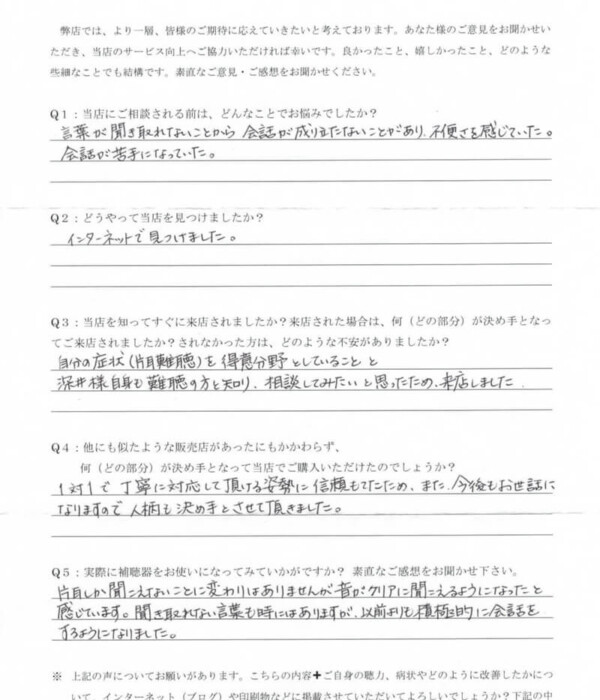 弊店では、より一層、皆様のご期待に応えていきたいと考えております。あなた様のご意見をお聞かせい
ただき、当店のサービス向上へご協力いただければ幸いです。良かったこと、嬉しかったこと、どのような
些細なことでも結構です。素直なご意見・ご感想をお聞かせください。
Q1：当店にご相談される前は、どんなことでお悩みでしたか？
言葉が聞き取れないことから 会話が成り立たないことがあり、不便さを感じていた。
会話が苦手になっていた。
Q2：どうやって当店を見つけましたか？
インターネットで見つけました。
Q3：当店を知ってすぐに来店されましたか？来店された場合は、何（どの部分）が決め手となっ
てご来店されましたか？されなかった方は、どのような不安がありましたか？
自分の症状（片耳難聴）を得意分野としていることと
深井様自身も難聴の方と知り、相談してみたいと思ったため、来店しました
Q4：他にも似たような販売店があったにもかかわらず、
何（どの部分）が決め手となって当店でご購入いただけたのでしょうか？
1対1で丁寧に対応して頂ける姿勢に信頼もてたため、また、今後もお世話に
なりますので人柄も決め手とさせて頂きました。
Q5：実際に補聴器をお使いになってみていかがですか？ 素直なご感想をお聞かせ下さい。
片耳しか聞こえないことに変わりはありませんが音がクリアに聞こえるようになったと
感じています。聞き取れない言葉も時にはありますが、以前よりも積極的に会話を
するようになりました。
※ 上記の声についてお願いがあります。こちらの内容＋ご自身の聴力、病状やどのように改善したかにつ
いて、インターネット（ブログ）や印刷物などに掲載させていただいてよろしいでしょうか？下記の中